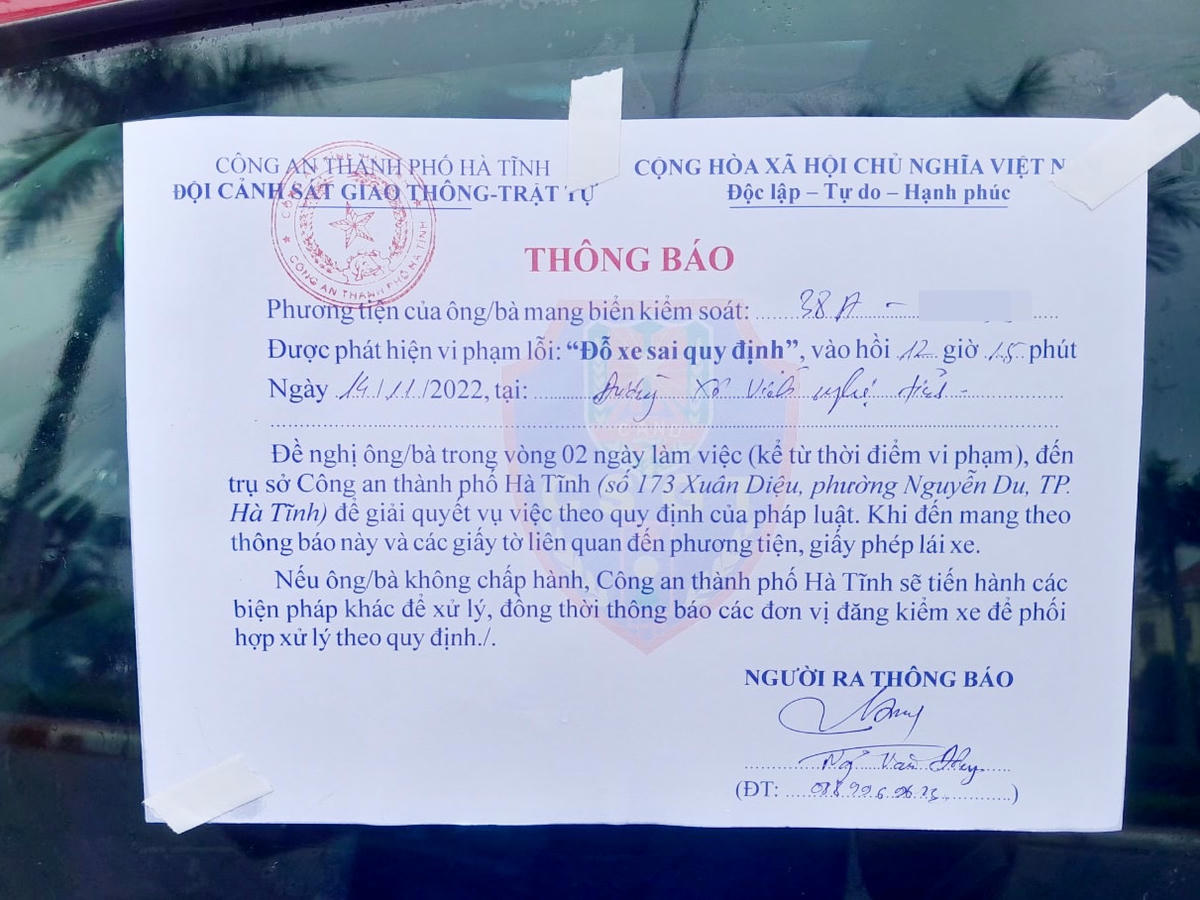 CÔNG AN THÀNH PHỐ HÀ TĨNH
ĐỘI CẢNH SÁT GIAO THÔNG-TRẬT TỰ
CỘNG HÒA XÃ HỘI CHỦ NGHĨA VIỆT N
Độc lập – Tự do – Hạnh phúc
CÔNG AN THÀNH PHỐ HÀ TĨNH
THÔNG BÁO
Phương tiện của ông/bà mang biển kiểm soát: 38A -
Được phát hiện vi phạm lỗi: “Đỗ xe sai quy định”, vào hồi 12 giờ 15 phút
Ngày 14/11/2022, tại: Đường Xô Viết Nghệ Tĩnh
Đề nghị ông/bà trong vòng 02 ngày làm việc (kể từ thời điểm vi phạm), đến
trụ sở Công an thành phố Hà Tĩnh (số 173 Xuân Diệu, phường Nguyễn Du, TP.
Hà Tĩnh) để giải quyết vụ việc theo quy định của pháp luật. Khi đến mang theo
thông báo này và các giấy tờ liên quan đến phương tiện, giấy phép lái xe.
Nếu ông/bà không chấp hành, Công an thành phố Hà Tĩnh sẽ tiến hành các
biện pháp khác để xử lý, đồng thời thông báo các đơn vị đăng kiểm xe để phối
hợp xử lý theo quy định./.
NGƯỜI RA THÔNG BÁO
Văn
(ĐT: )
CAND
CSGT